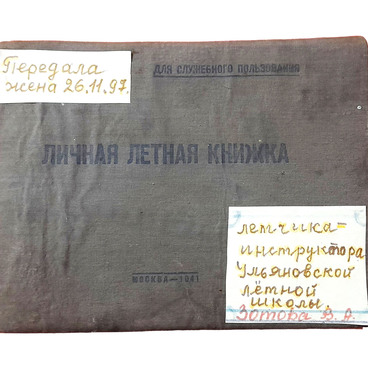 Передала
жена 26.11.97.
ДЛЯ СЛУЖЕБНОГО ПОЛЬЗОВАНИЯ
ЛИЧНАЯ ЛЕТНАЯ КНИЖКА
МОСКВА—1941
летчика-
инструктора
Ульяновской
лётной
школы.
Зотова В. А.